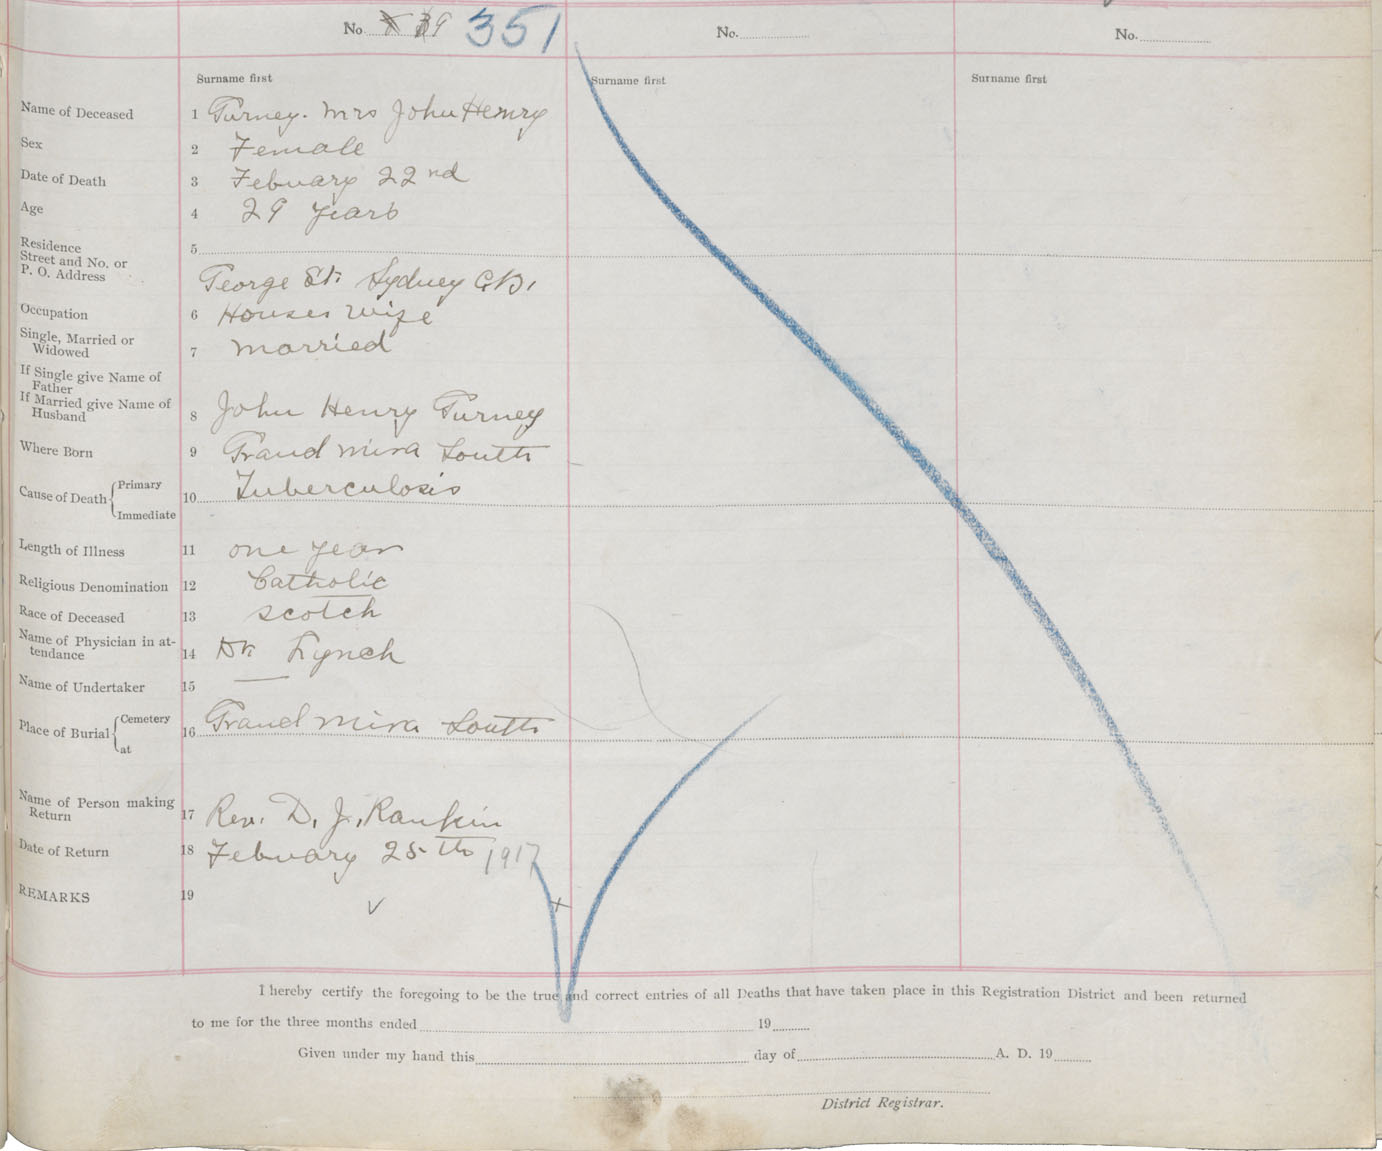 No. 39 351 No. No.
Surname first Surname first Surname first
Name of Deceased 1 Gurney. Mrs John Henry
Sex 2 Female
Date of Death 3 Febuary 22nd
Age 4 29 years
Residence
Street and No. or
P. O. Address 5
George St. Sydney C,B,
Occupation 6 Houses wife
Single, Married or
Widowed 7 married
If Single give Name of
Father
If Married give Name of
Husband 8 John Henry Gurney
Where Born 9 Grand Mira South
Cause of Death { Primary
Immediate 10 Tuberculosis
Length of Illness 11 one year
Religious Denomination 12 Catholic
Race of Deceased 13 Scotch
Name of Physician in at-
tendance 14 Dr. Lynch
Name of Undertaker 15 —
Place of Burial { Cemetery
at 16 Grand Mira South
Name of Person making
Return 17 Rev. D. J. Rankin
Date of Return 18 Febuary 25th 1917
REMARKS 19
I hereby certify the foregoing to be the true and correct entries of all Deaths that have taken place in this Registration District and been returned
to me for the three months ended 19
Given under my hand this day of A. D. 19
District Registrar.